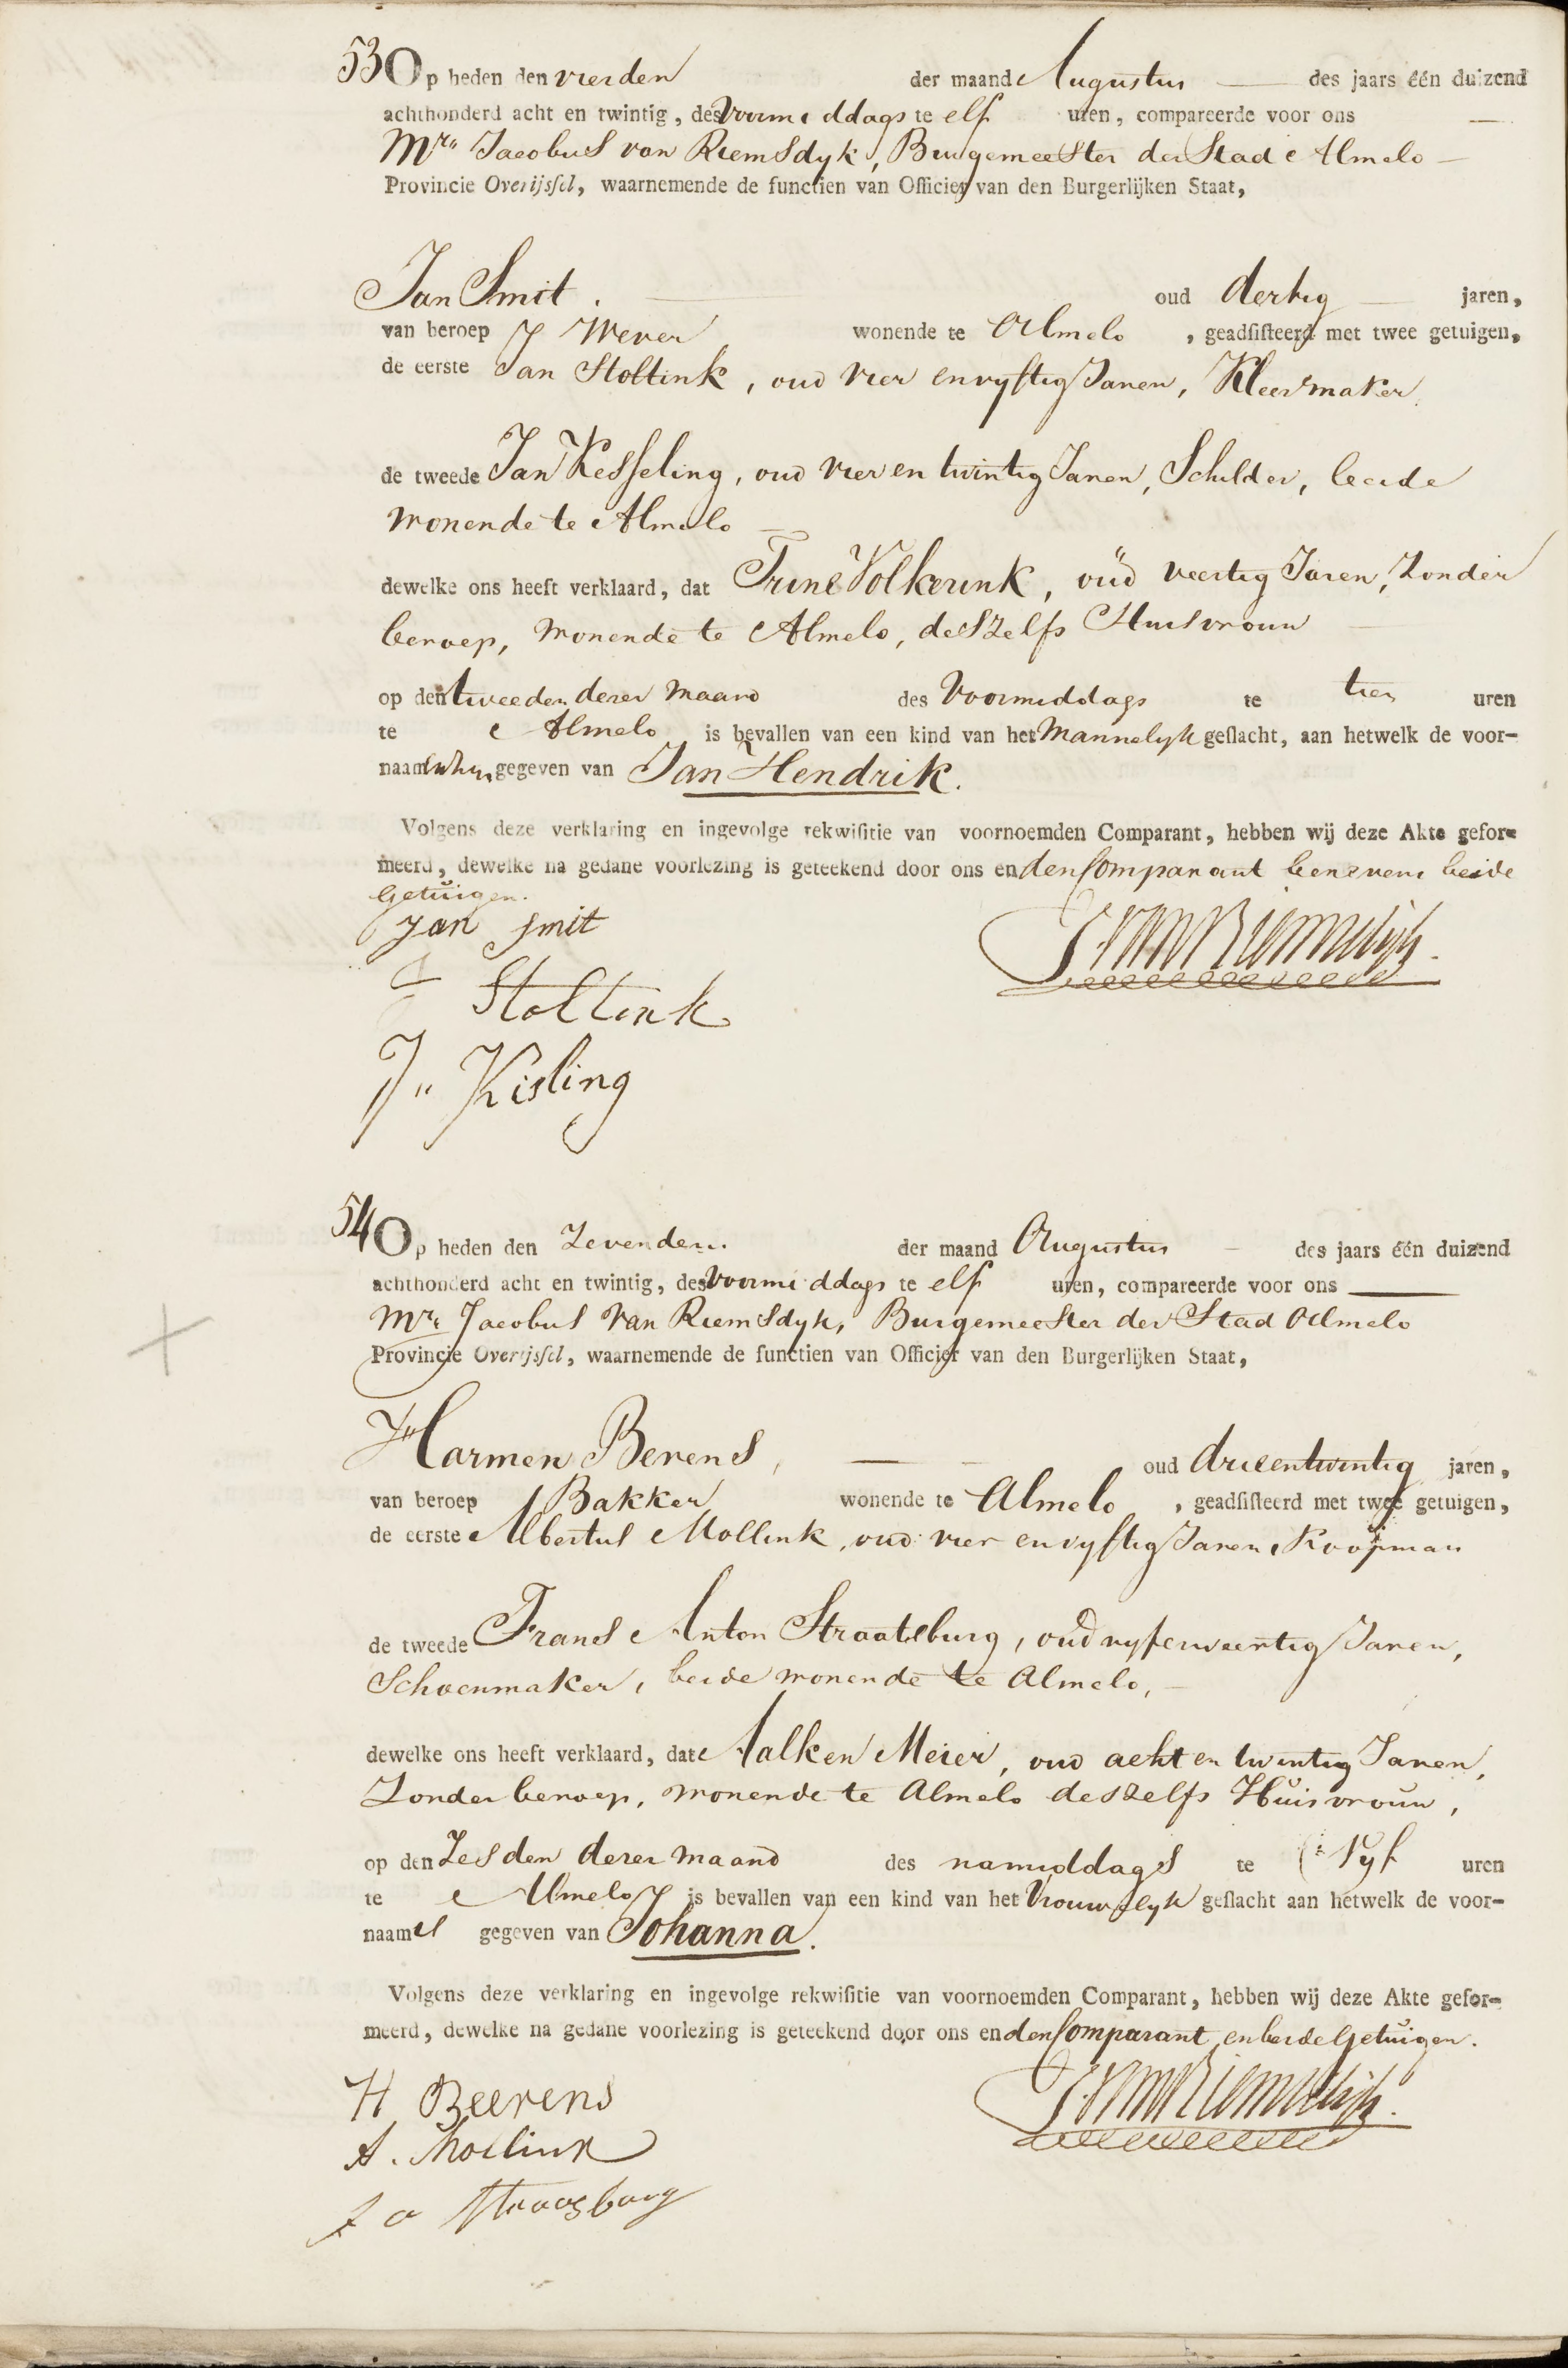 53 Op heden den vierden der maand Augustus des jaars één duizend
achthonderd acht en twintig, des voormiddags te elf uren, compareerde voor ons
Mr. Jacobus van Riemsdyk, Burgemeester der Stad Almelo
Provincie Overijssel, waarnemende de functien van Officier van den Burgerlijken Staat,
Jan Smit. oud dertig jaren,
van beroep Wever wonende te Almelo, geadsisteerd met twee getuigen,
de eerste Jan Stoltink, oud vier en vyftig Jaren, Kleermaker
de tweede Jan Kesseling, oud vier en twintig Jaren, Schilder, beide
wonende te Almelo
dewelke ons heeft verklaard, dat Trine Volkerink, oud veertig Jaren, Zonder
beroep, wonende te Almelo, deszelfs Huisvrouw
op den tweeden dezer maand des Voormiddags te tien uren
te Almelo is bevallen van een kind van het Mannelyk geslacht, aan hetwelk de voor-
naamen gegeven van Jan Hendrik.
Volgens deze verklaring en ingevolge rekwisitie van voornoemden Comparant, hebben wij deze Akte gefor-
meerd, dewelke na gedane voorlezing is geteekend door ons en den Comparant benevens beide
Getuigen.
Jan Smit
J. van Riemsdijk.
Stoltink
J. Kisling
54 Op heden den Zevenden der maand Augustus des jaars één duizend
achthonderd acht en twintig, des Voormiddags te elf uren, compareerde voor ons
Mr. Jacobus van Riemsdyk, Burgemeester der Stad Almelo
Provincie Overijssel, waarnemende de functien van Officier van den Burgerlijken Staat,
Harmen Berens, oud drieentwintig jaren,
van beroep Bakker wonende te Almelo, geadsisteerd met twee getuigen,
de eerste Albertus Mollink, oud vier en vyftig Jaren, Koopman
de tweede Frans Anton Straatsburg, oud vyfenveertig Jaren,
Schoenmaker, beide wonende te Almelo,
dewelke ons heeft verklaard, dat Aalken Meier, oud acht en twintig Jaren,
Zonder beroep, wonende te Almelo deszelfs Huisvrouw,
op den Zesden dezer maand des namiddags te Vyf uren
te Almelo is bevallen van een kind van het Vrouwelyk geslacht aan hetwelk de voor-
naam is gegeven van Johanna.
Volgens deze verklaring en ingevolge rekwisitie van voornoemden Comparant, hebben wij deze Akte gefor-
meerd, dewelke na gedane voorlezing is geteekend door ons en den Comparant en beide Getuigen.
H Beerens
J. van Riemsdijk.
A. Mollink
f a Straasburg